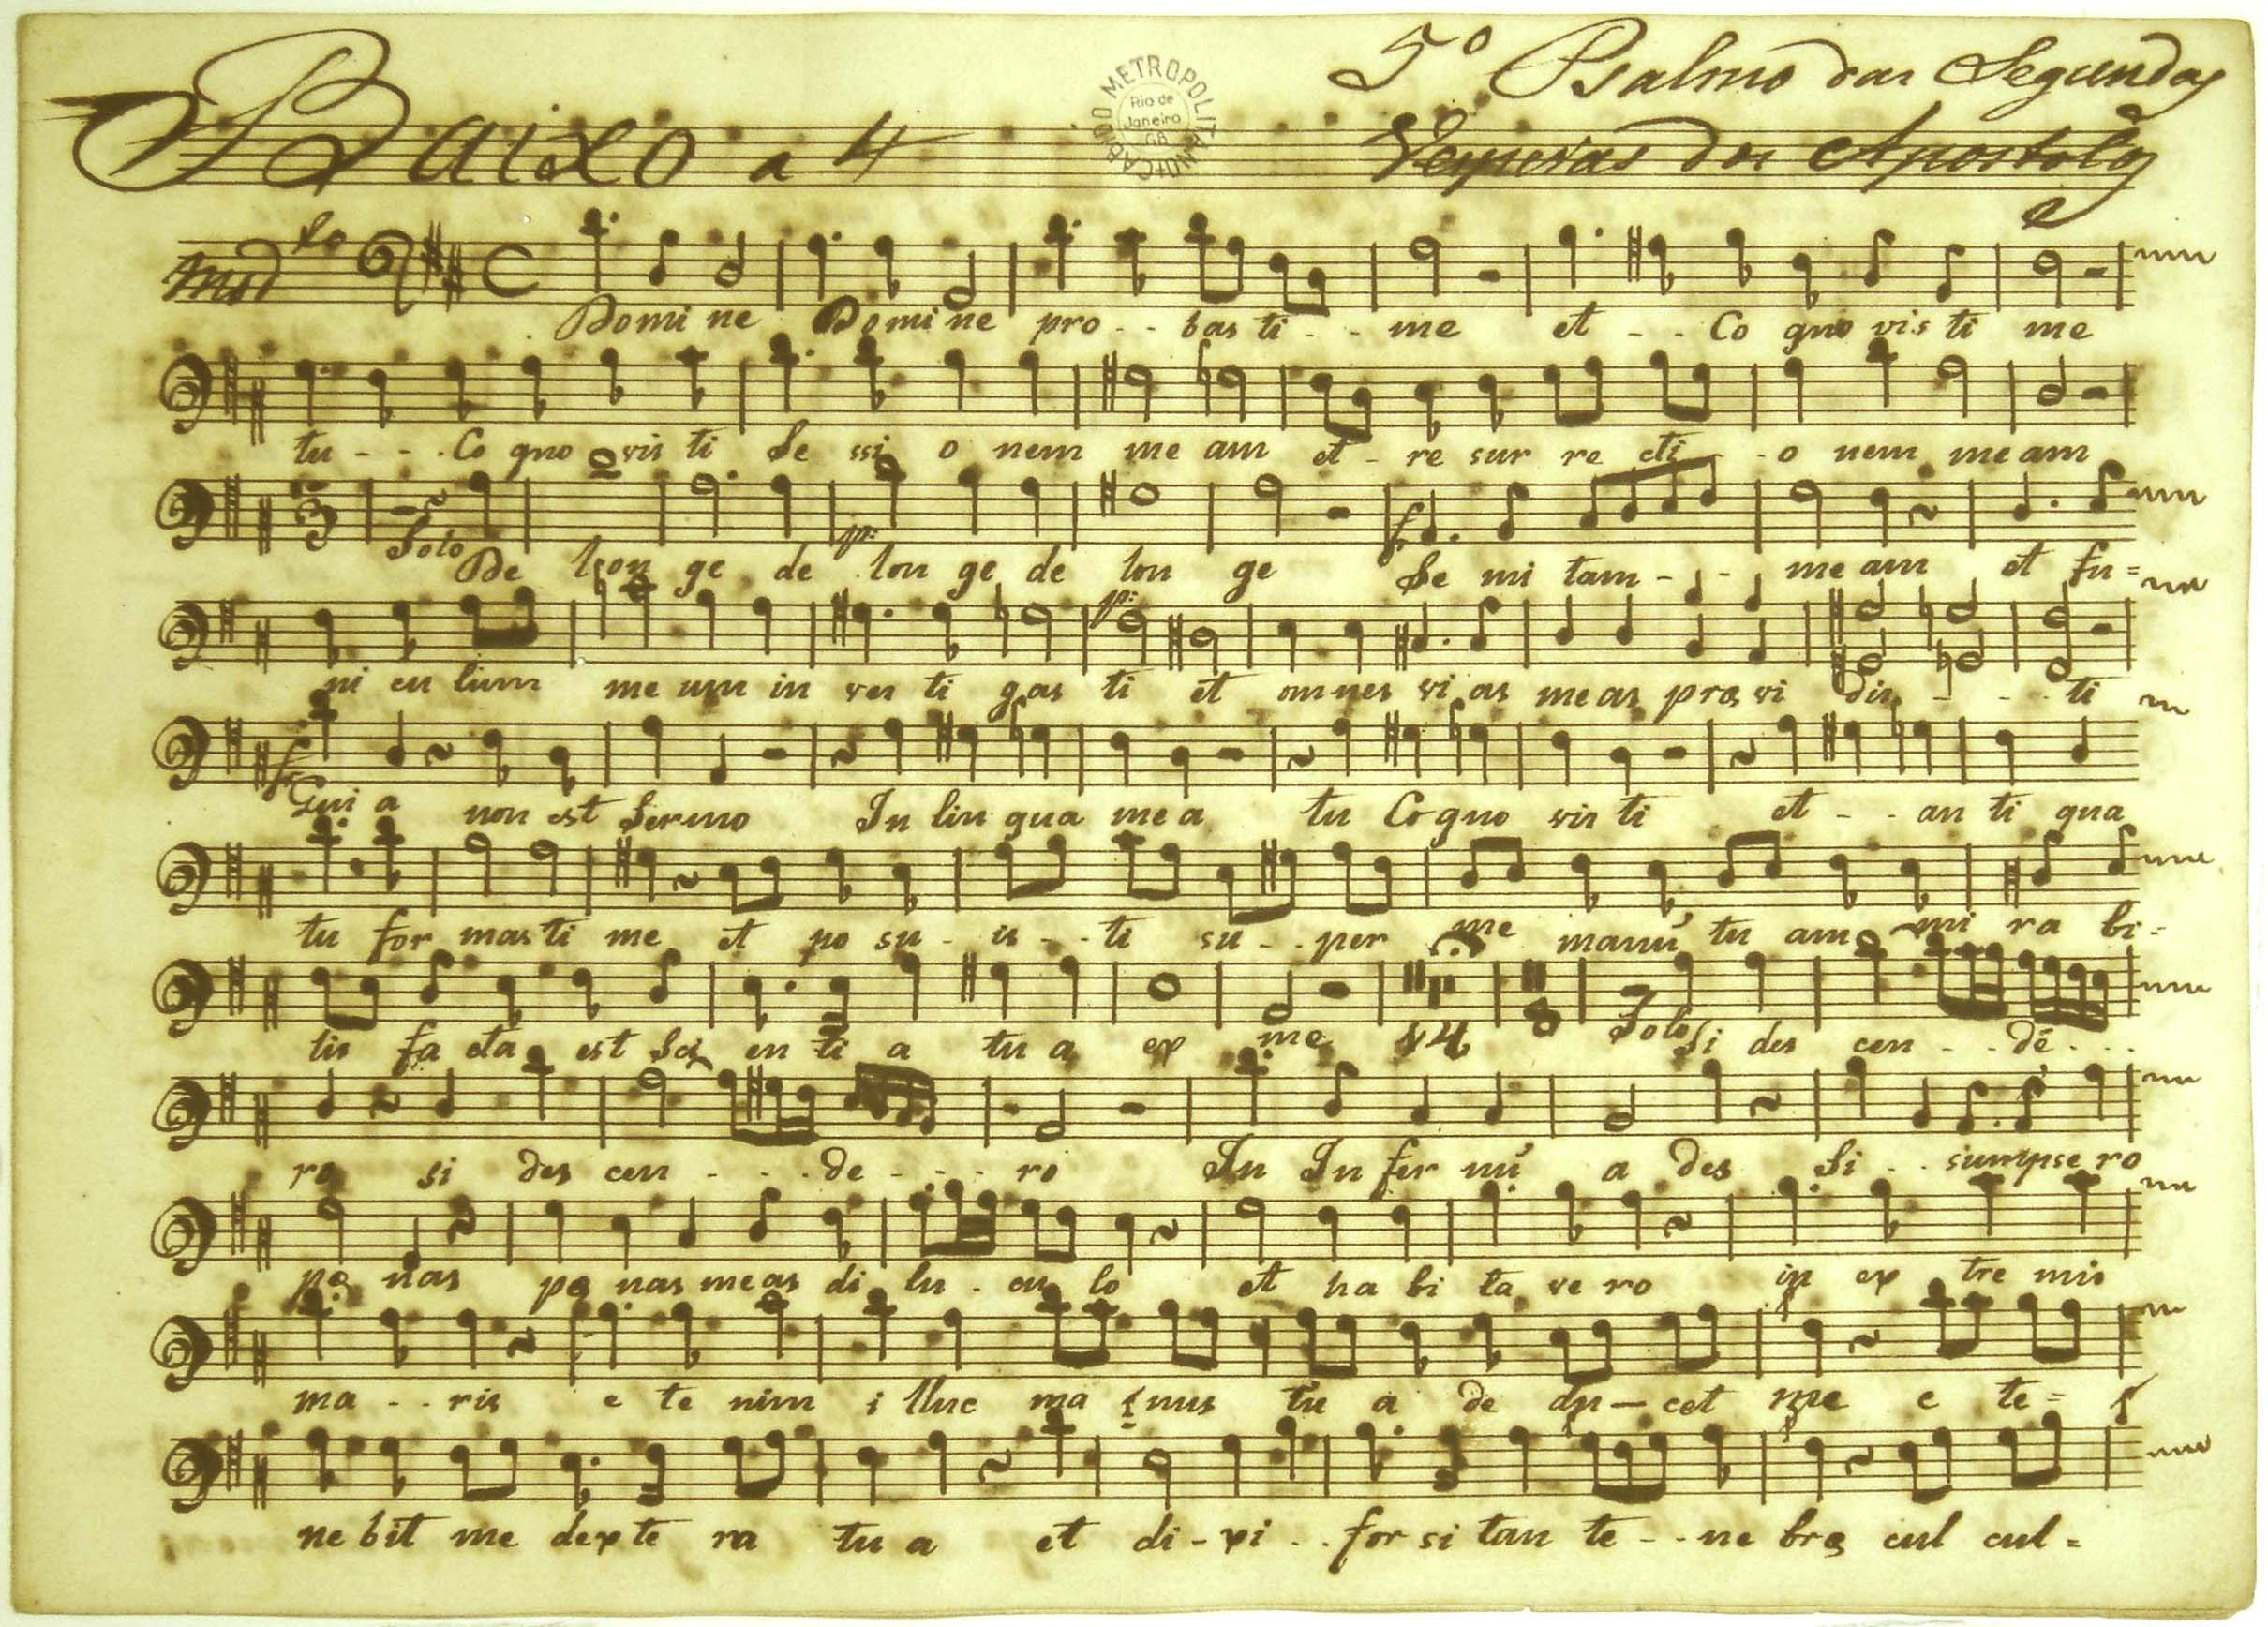 5º Psalmo das Segundas
Baixo a 4
Vesperas dos Apostolos
CABIDO METROPOLITANO
Rio de
Janeiro
GB
Modto
Domi ne Domi ne pro - - bas ti - - me et - - Co gno vis ti me
tu - - - Co gno vis ti Se ssi o nem me am et - re sur re cti - - o nem me am
3
Solo
p:
f
De lon ge de lon ge de lon ge Se mi tam - - me am et fu=
p:
ni cu lum me um in ves ti gas ti et omnes vi as me as præ vi dis - - - ti
f
Qui a non est Sermo In lin gua me a tu Cogno vis ti et - - an ti qua
tu for mas ti me et po su - is - - ti su - - per me manú tu am mi ra bi=
tis fa cta est Sci en ti a tu a ex me
Solo
Si des cen - - dé - - -
ro si des cen - - - de - - - ro In In fer nú a des Si - - sumpse ro
pe nas pe nas me as di lu - cu lo et ha bi ta ve ro in ex tre mis
ma - - ris e te nim i lluc ma nus tu a de du - cet me e te=
ne bit me dexte ra tu a et di - xi - - for si tan te - - ne bræ cul cul=